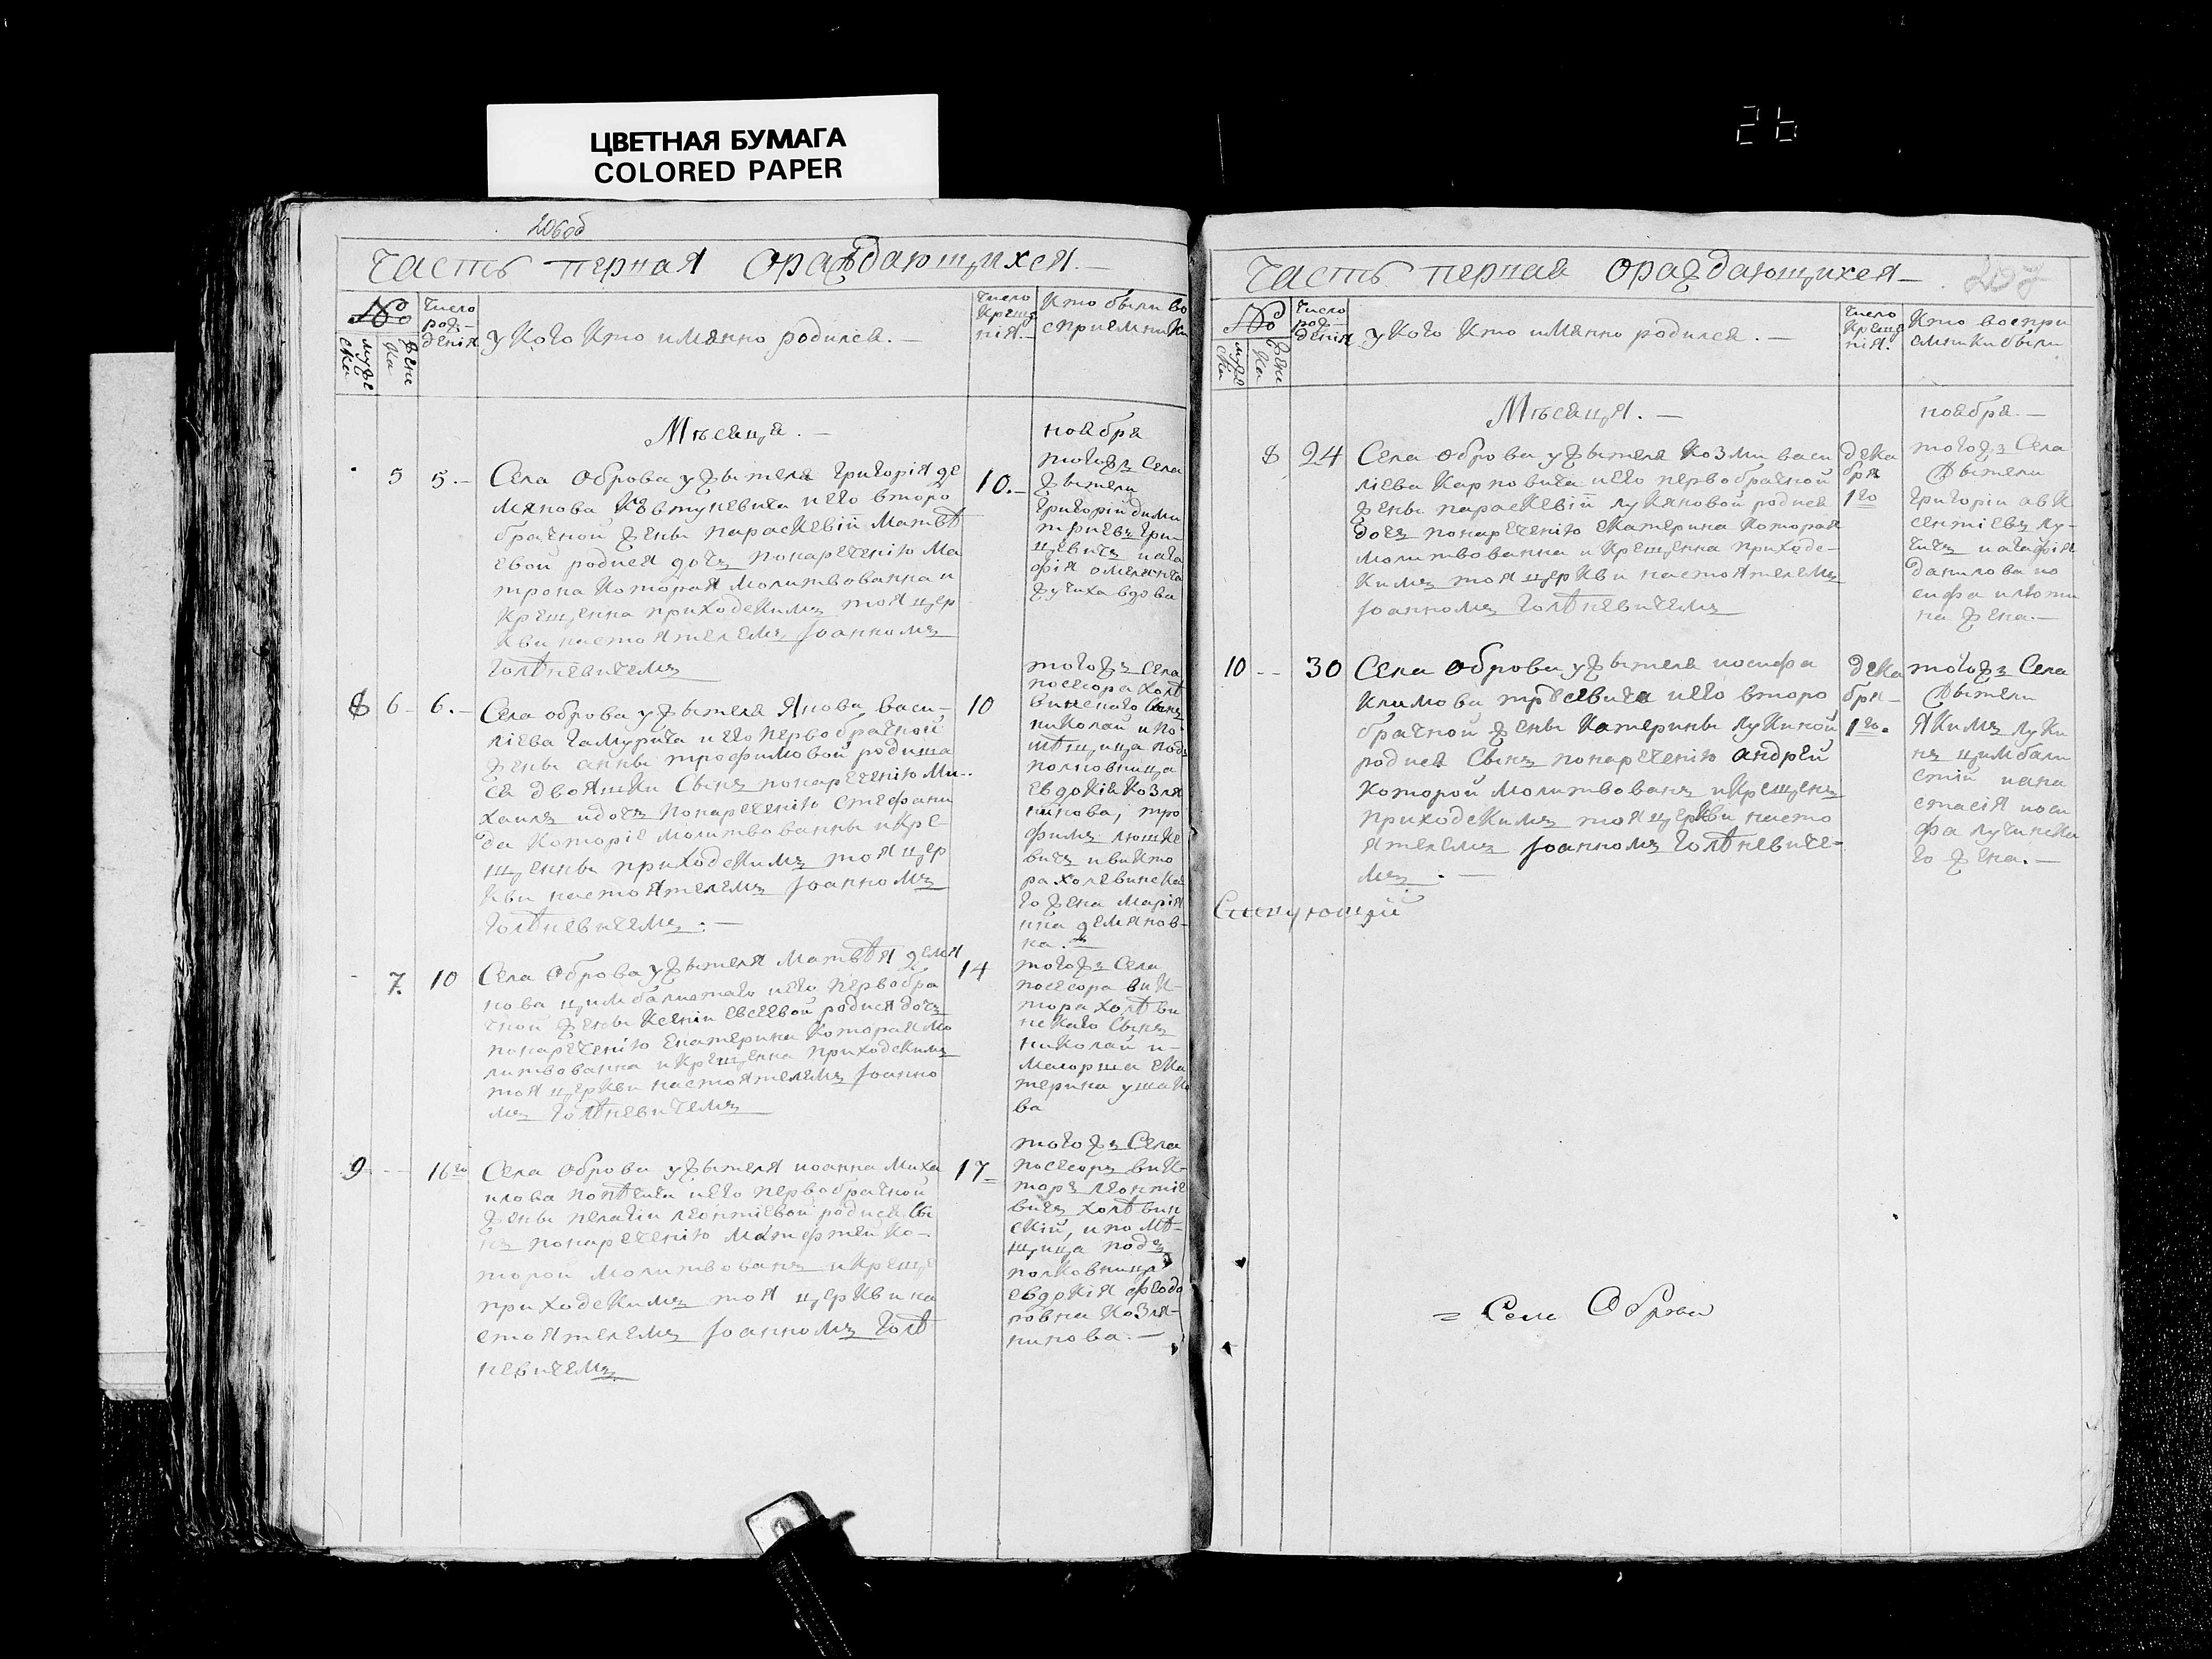 ЦВЕТНАЯ БУМАГА
COLORED PAPER
26
206об
Часть перная ораждающихся.—
№
мужеска
женска
Число рождения
у кого кто имянно родился.—
Число крещения.—
Кто были восприемники
Мѣсяца.—
ноября
5
5.—
Села Оброва у жытеля Григорія Де
мянова Ковтуневича и его второ
брачной жены Параскевіи Матвѣ
евой родися дочъ понаречению Ма
трона которая молитвованна и
крещенна приходскимъ тоя цер
кви настоятелемъ Іоанномъ
Голѣневичемъ
10.—
тогожъ Села
жытели
Григорій Дими
тріевъ Гри-
цевичъ и Ага
фія Омеляна
вдова
8
6
6.—
Села оброва у жытеля Янова Васи-
ліева Гамурича и его первобрачной
жены Анны Трофимовой родиша
ся двояшки Сынъ понаречению Ми-
хаилъ и дочъ понаречению Стефани
да которіе молитвованны и кре-
щенны приходскимъ тоя цер
кви настоятелемъ Іоанномъ
Голѣневичемъ.—
10
тогожъ Села
посесора Холѣ
винскаго Сынъ
Николай и по-
мѣщица подъ
полковница
Евдокія Козля
нинова, Тро
фимъ Люшке
вичъ и Викто
ра Холевинска
го жена Марія
нна Демянов-
на.—
7.
10
Села Оброва у жытеля Матвѣя Демя
нова Цимбалистаго и его первобра
чной жены Ксеніи Евсеевой родися дочъ
понаречению Екатерина которая мо
литвованна и крещенна приходскимъ
тоя церкви настоятелемъ Іоанно
мъ Голѣневичемъ
14
тогожъ Села
посесора Вик-
тора Холѣви
нскаго Сынъ
Николай и-
Маіорша Ека
терина Ушако
ва
9
16го
Села Оброва у жытеля Иоанна Миха
илова и его первобрачной
жены Пелагіи Леонтіевой родися Сы
нъ понаречению Матфтей ко-
торой молитвованъ и креще
приходскимъ тоя церкви на
стоятелемъ Іоанномъ Голѣ
невичемъ
17
тогожъ Села
посесоръ Вик-
торъ Леонтіе
вичъ Холѣвин
скій, и помѣ-
щица подъ
полковница
Евдокія Феодо
ровна Козля-
нинова.—
Часть перная ораждающихся—
207
№
мужеска
женска
Число рождения
у кого кто имянно родился.—
Число крещения.
Кто воспри
емники были
Мѣсяця.—
ноября.—
8
24
Села Оброва у жытеля Козми Васи
ліева Карповича и его первобрачной
жены Параскевіи Лукяновой родися
дочъ понаречению Екатерина которая
молитвованна и крещенна приходс-
кимъ тоя церкви настоятелемъ
Іоанномъ Голѣневичемъ
дека
бря
1го
тогожъ Села
Жытели
Григорій Авк
сентіевъ Лу-
чичъ и Агафія
Данилова Ио
сифа Илюти
на жена.—
10
30
Села Оброва у жытеля Иосифа
Климова и его второ
брачной жены Катерины Лукиной
родися Сынъ понаречению Андрей
которой молитвованъ и крещенъ
приходскимъ тоя церкви насто
ятелемъ Іоанномъ Голѣневиче-
мъ.—
дека
бря-
1го.
тогожъ Села
Жытели
Якимъ Луки
нъ Цимбали
стій и Ана
стасія Иоси
фа Лучинска
го жена.—
= Села Оброва